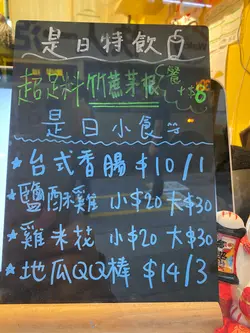 是日特飲
超足料竹蔗茅根
是日小食
★台式香腸 $10/1
★鹽酥雞 小$20 大$30
★雞米花 小$20 大$30
★地瓜QQ棒 $14/3